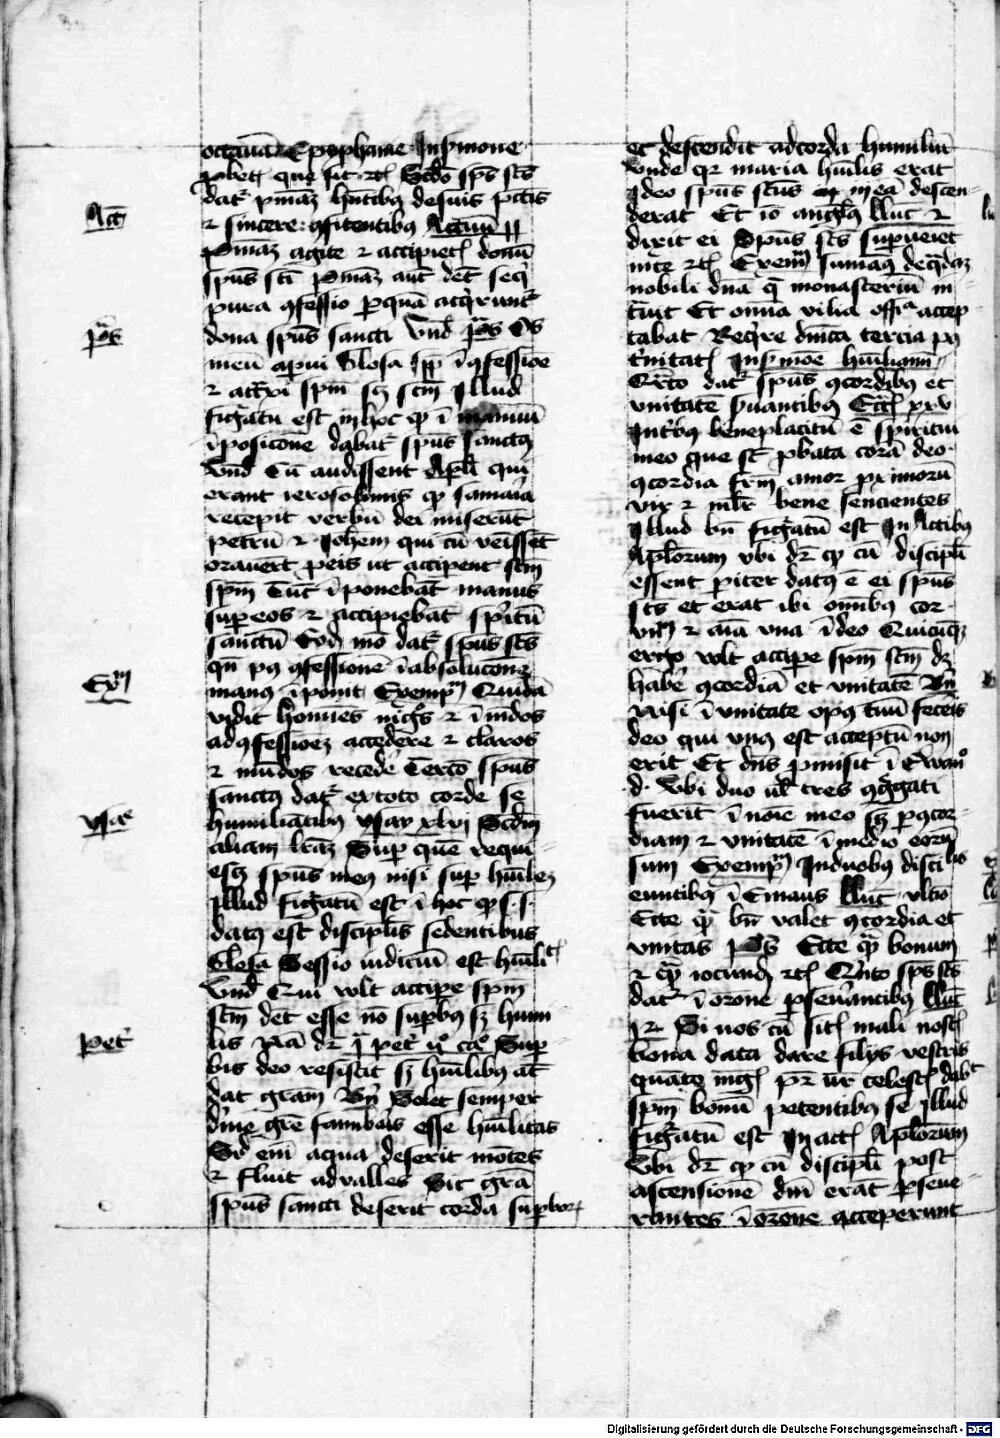 octauā Epyphanie In sermone
p̄bet que sit etc̄ Scd̄o sp̄s sc̄s
dat᷑ pn̄iaʒ hn̄tibꝰ de suis pctīs
Act̄
⁊ sincere ꝯfitentibꝰ Actuū ii
Pn̄iaʒ agite ⁊ accipiet̄ donū
spūs sc̄i Pn̄iaʒ aut̄ det̄ seq̄
pura ꝯfessio ꝑ quā acq̄runt᷑
p̄s
dona spūs sancti Vn̄ p̄s Os
meū aperui Glosa ī ꝯfessioe
⁊ att̄xi sp̄m sʒ sc̄m Illud
figātu est in hoc ꝙ ī manuū
īposicōne dabat᷑ spūs sanctꝰ
Vn̄ Cū audissent Apl̄i qui
erant ierosolimis ꝙ samaria
recepit verbū dei miserūt
petrū ⁊ Iohem qui cū veīssēt
orauerūt ꝑ eis ut acciperent sc̄m
sp̄m Tūc īponebāt manus
suꝑ eos ⁊ accipiebāt spiritū
sanctū Eodē mō dat᷑ spūs sc̄s
qn̄ pꝰ ꝯfessionē ī absolucōne
Exm̄
manꝰ īponit Exemp̄m Quidā
vidit hoīnes nigͦs ⁊ īmūdos
ad ꝯfessioeʒ accedere ⁊ claros
⁊ mūdos recede Tercō spūs
sanctꝰ dat᷑ ex toto corde se
ysae
humiliātibꝰ Ysay xlvi Scd̄m
aliam lr̄aʒ Suꝑ quē requi
escʒ spūs meꝰ nisi suꝑ hūileʒ
Illud figātū est ī hoc ꝙ s.s.
datꝰ est discipl̄is sedentibus
Glosa Sessio iudiciū est hūilit̄
Vn̄ Qui volt accipe sp̄m
sc̄m det̄ esse nō suꝑbꝰ sʒ humi
Pet᷑
lis Nā dr̄ p̄ petͥ vͦ caͦ Suꝑ
bis deo resistit sʒ hūilibꝰ āt
dat grām Bn̄ Solet semper
dīne grē famil̄is esse hūilitas
Sic̄ eni aqua deserit mōtes
⁊ fluit ad valles Sic grā
spūs sancti deserit corda suꝑbor
et descendit ad corda humiliū
Vnde qr maria hūilis erat
Ideo spūs scūs in eā descen
derat Et iō angelꝰ lūc̄ ⁊
dixit ei Spūs sc̄s suꝑueīet
in te etc̄ Exem̄ sumaꝰ de q̄daʒ
nobili dn̄a q̄ monasteriū in
t̄uit Et omīa vilia offᵃ accep
tabat Req̄re dn̄ica tercia pꝰ
t̄nitat̄ In s̄moe hūiliamī
Qrto dat᷑ spūs ꝯcordibꝰ et
vnitatē s̄uantibꝰ Ecc̄l xxv
In tribꝰ beneplacitū ē spiritui
meo que st̄ ꝓbata corā deo
ꝯcordia fr̄m amor proximorū
vir ⁊ mlr̄ bene sencientes
Illud bn̄ figātū est In Actibꝰ
Aplorum vbi dr̄ ꝙ cū discipl̄i
essent pariter datꝰ ē ei spūs
sc̄s et erat ibi omībꝰ cor
vnū ⁊ aīa vna ī deo Quicūqʒ
ergo volt accipe sp̄m sc̄m dʒ
habē ꝯcordiā et vnitatē Bn̄
Nisi ī vnitate opꝰ tuū feceris
deo qui vnꝰ est acceptū non
erit Et dn̄s ꝓmisit ī Ewanͦ
d. Vbi duo vl̄ tres ꝯgregati
fuerīt ī noīe meo sʒ ꝑ ꝯcor
diam ⁊ vnitatē ī medio eorū
sum Exemp̄m In duobꝰ discilis
euntibꝰ ī Emaus Luc̄ vltio
Ecce qm̄ bn̄ valet ꝯcordia et
vnitas P̄s Ecce qm̄ bonum
⁊ qm̄ iocundū etc̄ Qrto sp̄s sc̄s
dat᷑ ī orōne ꝑseuerantibꝰ Luc̄
Si nos cū sit̄ mali nost̄
bona data dare filijs vestris
quāto mgs̄ pr̄ vr̄ celest̄ dabt̄
sp̄m bonū petentibus se Illud
figātū est In act̄ Aplorum
Vbi dr̄ ꝙ cū discipl̄i post
ascensionē dn̄i erāt ꝑseue
rantes ī orōne acceperunt
Digitalisierung gefördert durch die Deutsche Forschungsgemeinschaft - DFG